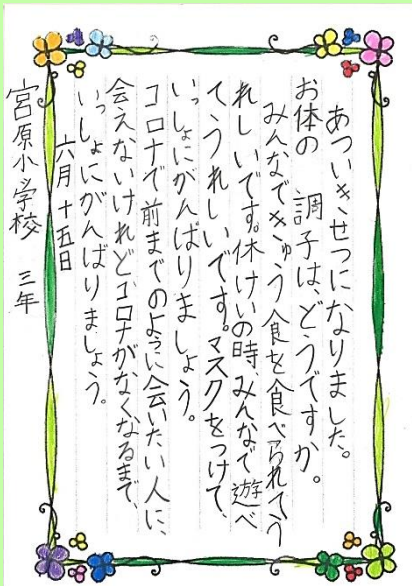 あついきせつになりました。
お体の 調子は、どうですか。
みんなできゅう食を食べられてう
れしいです。休けいの時みんなで遊べ
てうれしいです。マスクをつけて、
いっしょにがんばりましょう。
コロナで前までのように会いたい人に、
会えないけれどコロナがなくなるまで、
いっしょにがんばりましょう。
六月十五日
宮原小学校 三年